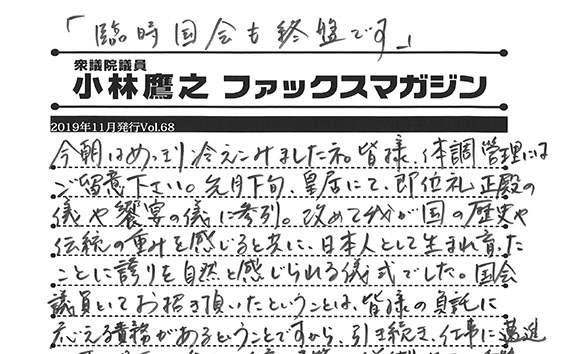 「臨時国会も終盤です」
衆議院議員
小林鷹之 ファックスマガジン
2019年11月発行Vol.68
今朝はめっきり冷えこみましたネ。皆様、体調管理には
ご留意下さい。先月下旬、皇居にて、即位礼正殿の
儀や饗宴の儀に参列。改めて我が国の歴史や
伝統の重みを感じると共に、日本人として生まれ育った
ことに誇りを自然と感じられる儀式でした。国会
議員としてお招き頂いたということは、皆様の負託に
応える責務があるということですから、引き続き、仕事に邁進